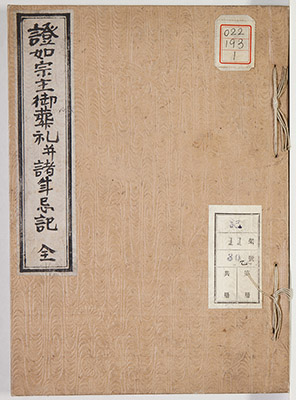 證如宗主御葬礼并諸年忌記 全
022
193
1
11
80